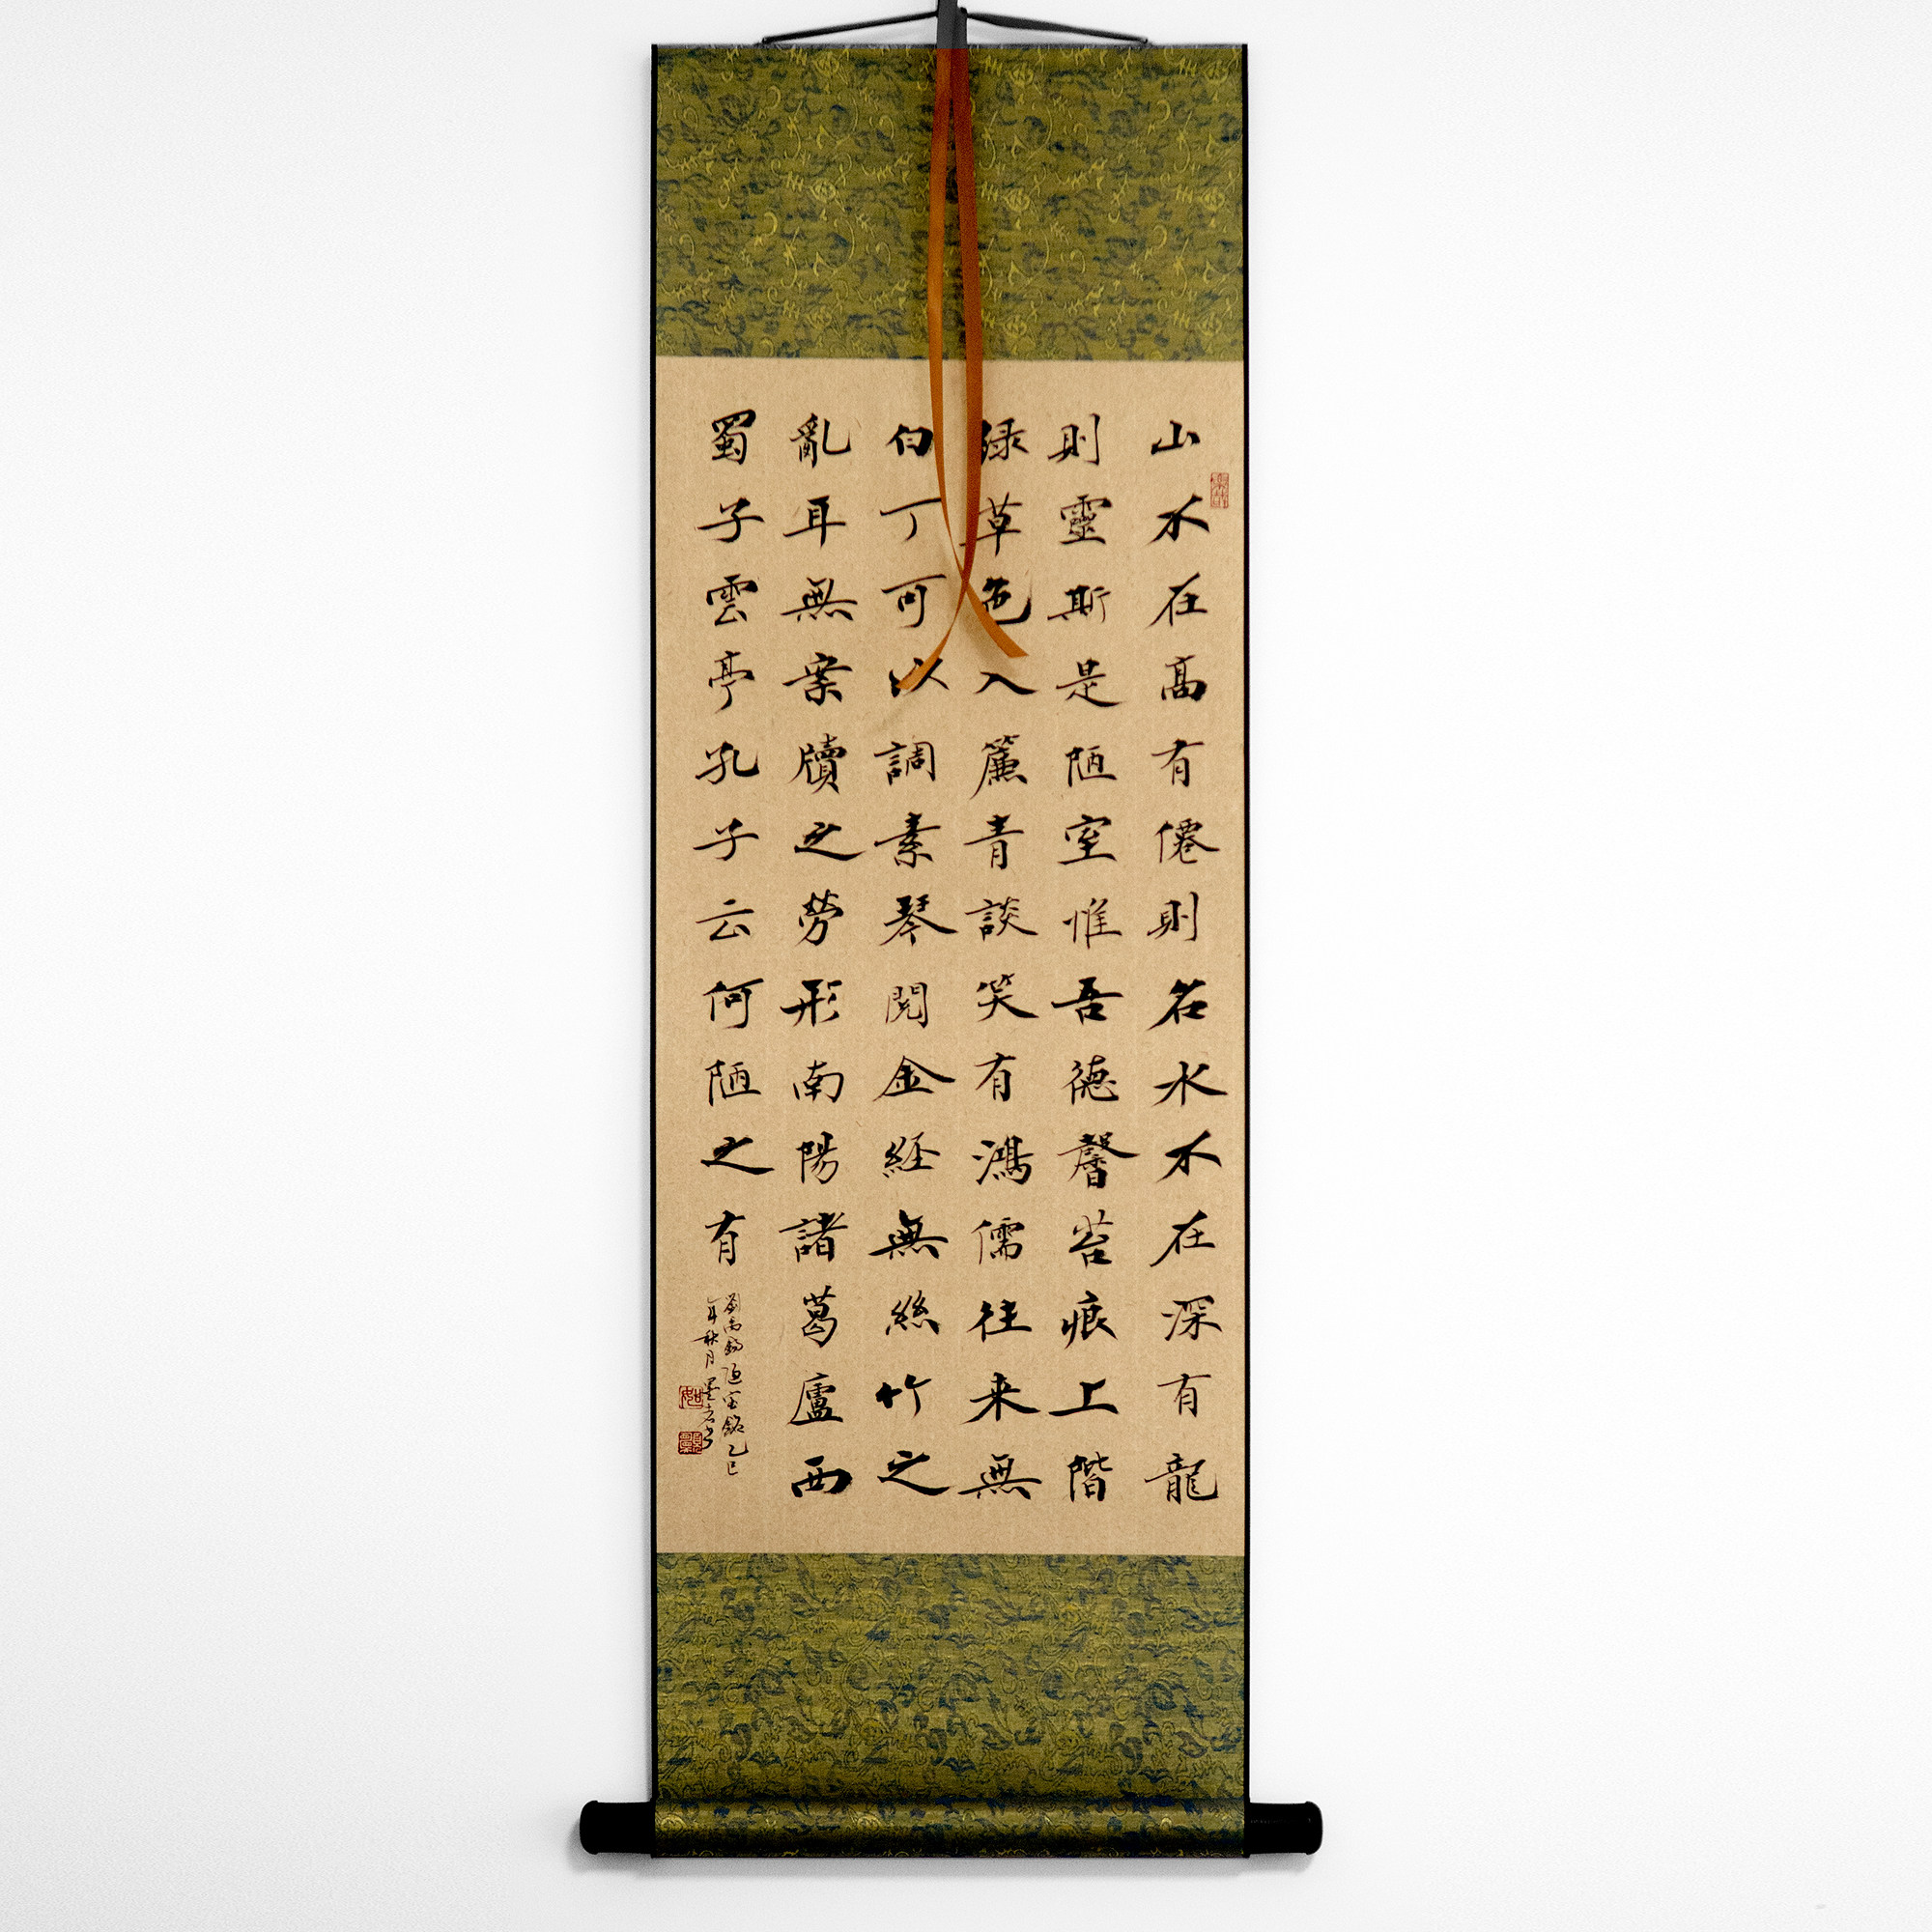 山不在高有僊則名水不在深有龍
則靈斯是陋室惟吾徳馨苔痕上階
緑草色入簾青談笑有鴻儒往来無
白丁可以調素琴閲金経無絲竹之
亂耳無案牘之勞形南陽諸葛廬西
蜀子雲亭孔子云何陋之有
劉禹錫陋室銘乙巳
年秋月墨